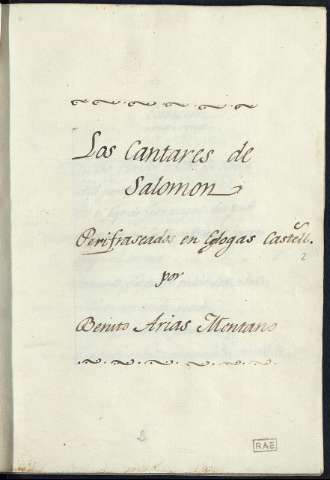 Los Cantares de
Salomon
Perifraseados en Eglogas Castell.
por
Benito Arias Montano
RAE